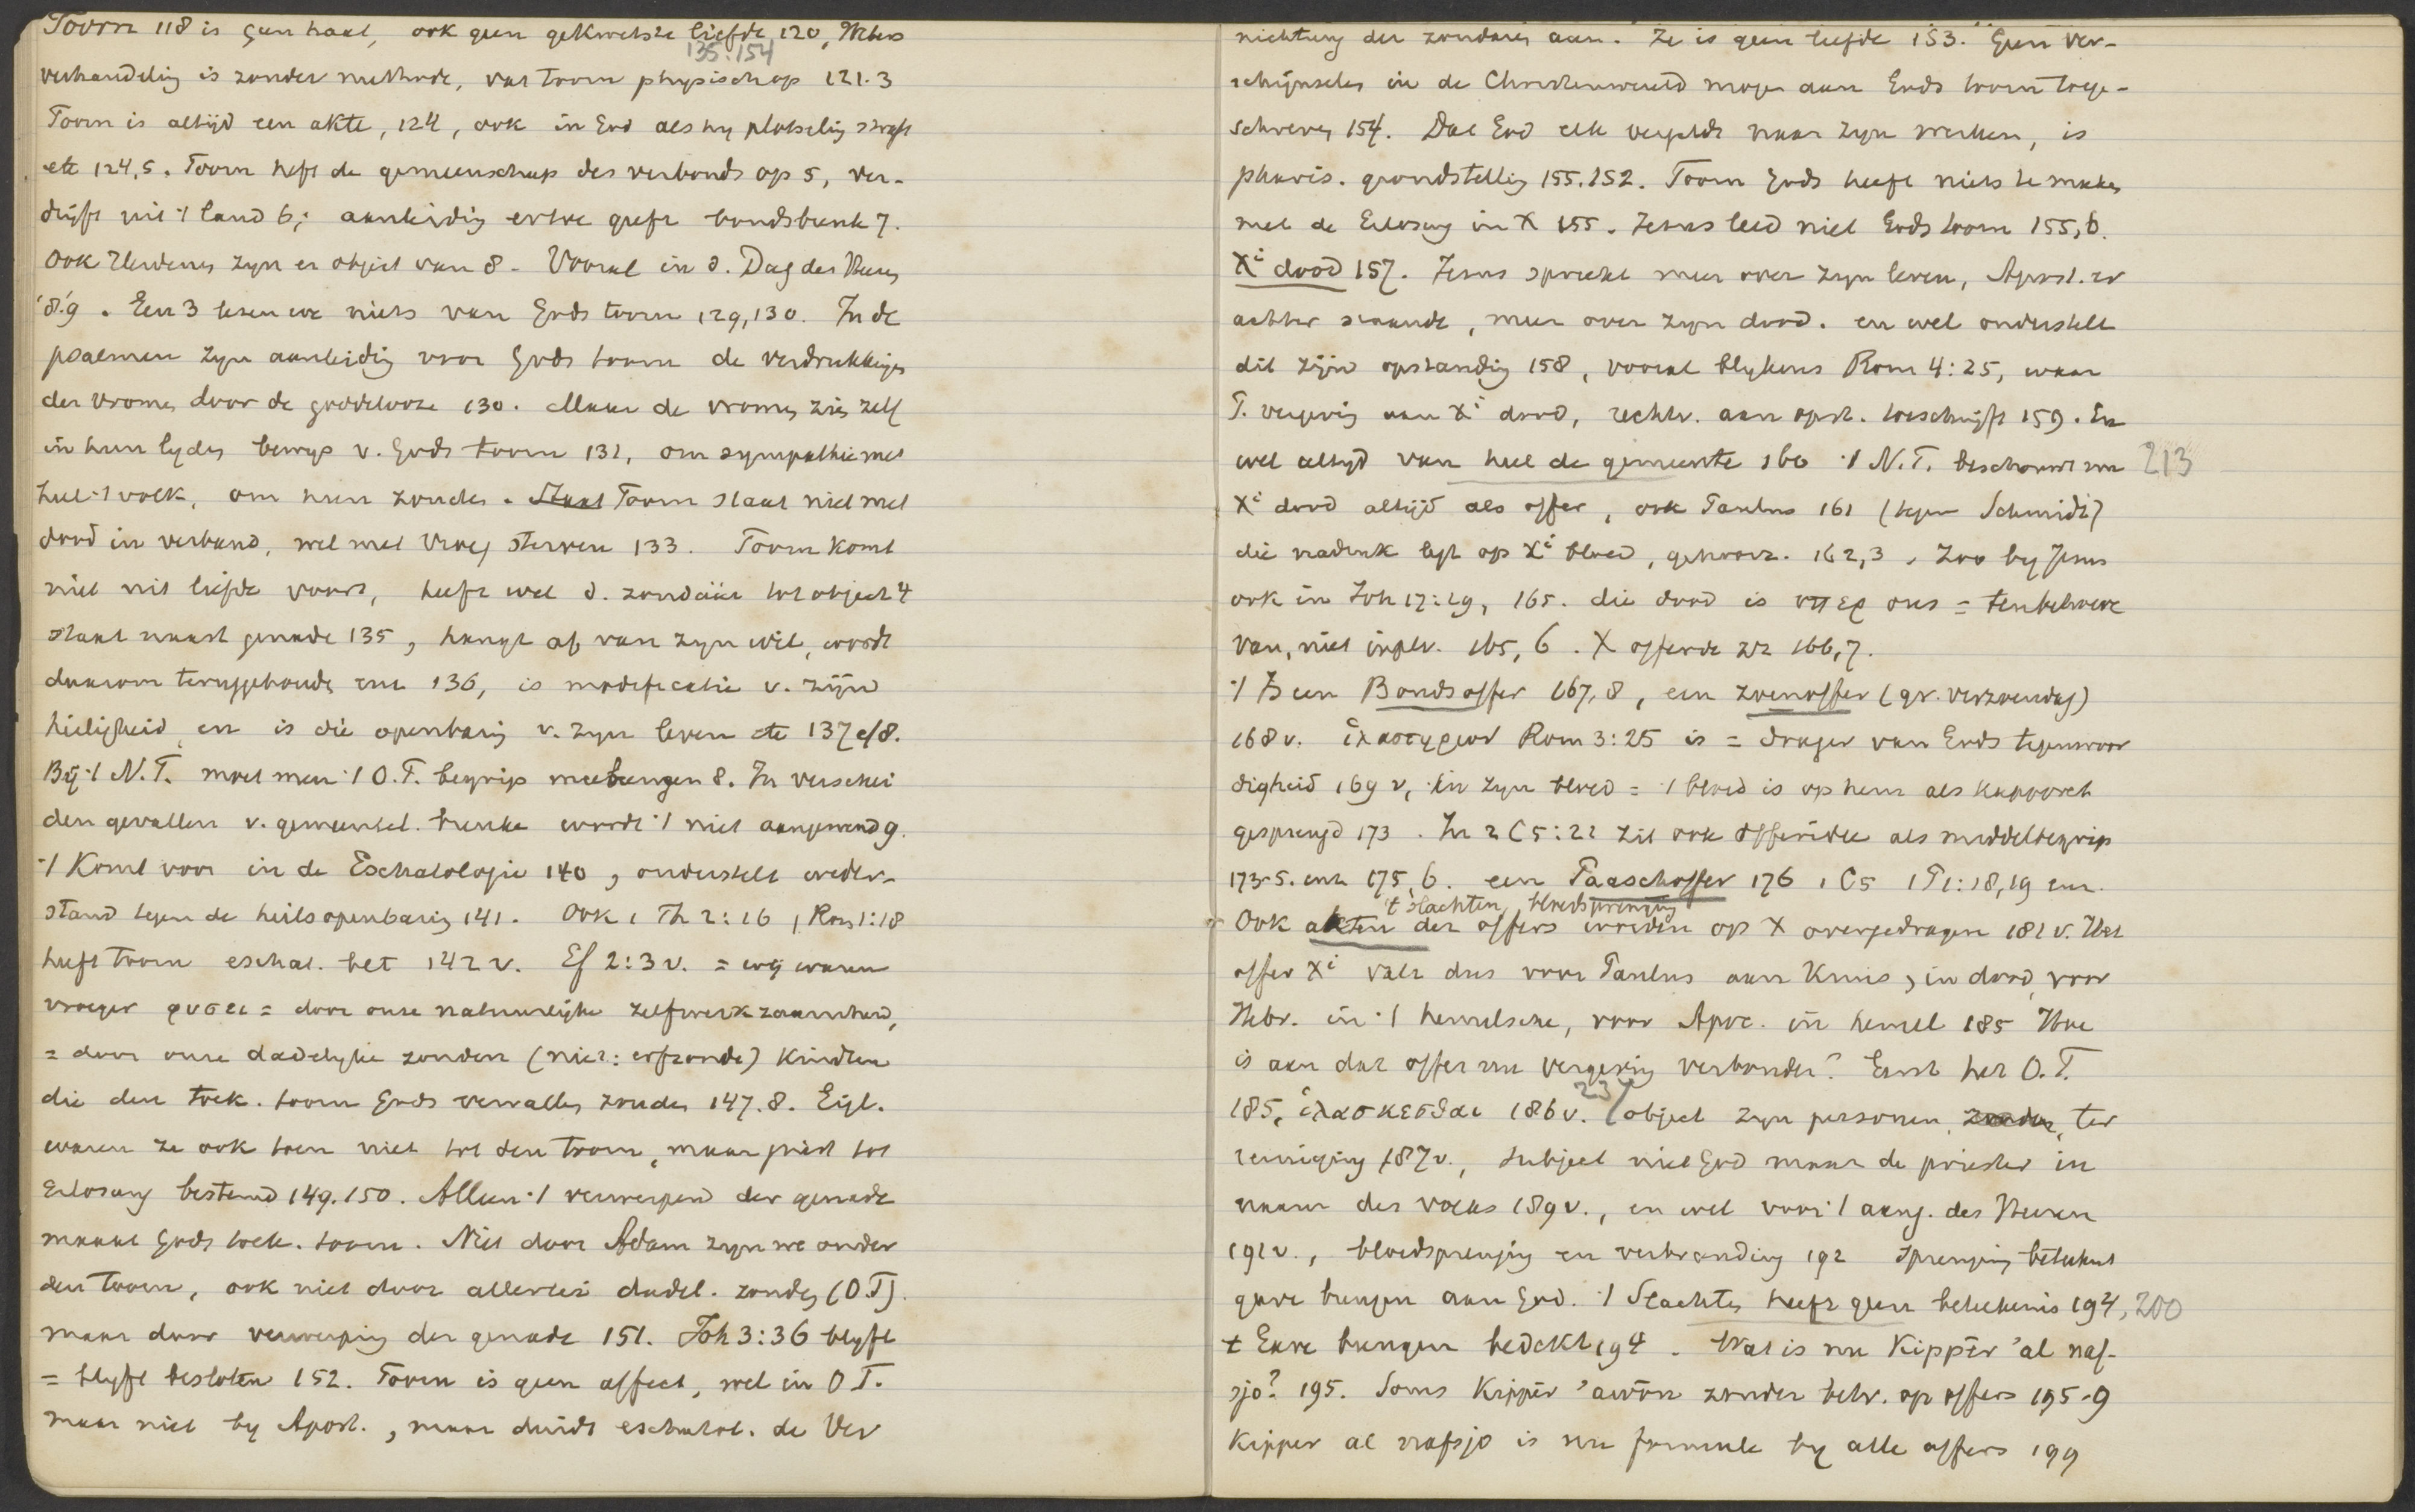 Toorn 118 is geen haat, ook geen gekwetste liefde 120, Webers
135. 154
verhandeling is zonder methode, vat toorn physisch op 121.3
Toorn is altijd een akte, 124, ook in God als hy plotselig straft
etc 124,5. Toorn heft de gemeenschap des verbonds op 5, ver-
drijft uit 't land 6; aanleidig ertoe geeft bondsbreuk 7.
Ook Heidenen zyn er object van 8 - Vooral in d. Dag des Heeren
8.9. Gen 3 lezen we niets van Gods toorn 129,130. In de
psalmen zyn aanleidig voor Gods toorn de verdrukkingen
der vromen door de goddelooze 130. Maar de vromen zien zelf
in hun lyden bewys v. Gods toorn 132, om sympathie met
heel 't volk, om hun zonden. Staat Toorn staat niet met
dood in verband, wel met vroeg sterven 133. Toorn komt
niet uit liefde voort, heeft wel d. zondaar tot object 4
staat naast genade 135, hangt af van zyn wil, wordt
daarom teruggehouden enz 136, is modificatie v. zijn
heiligheid, en is die openbarig v. zyn leven etc 137 e/8.
Bij 't N.T. moet men 't O.T. begrip meebrengen 8. In verschei
den gevallen v. gemeensch. breuke wordt 't niet aangewend 9.
't Komt voor in de Eschatologie 140, onderstelt weder-
stand tegen de heilsopenbarig 141. Ook 1 Th 2:16, Rom 1:18
heeft toorn eschat. bet 142 v. Ef 2:3 v. = wij waren
vroeger φυσει = door onze natuurlijke zelfwerkzaamheid,
= door onze dadelyke zonden (niet: erfzonde) kinderen
die den toek. toorn Gods vervallen zouden 147.8. Eigl.
waren ze ook toen niet tot den toorn, maar juist tot
Erlosung bestemd 149.150. Alleen 't verwerpend der genade
maakt Gods toek. toorn. Niet door Adam zyn we onder
den toorn, ook niet door allerlei dadel. zonden (O.T).
maar door verwerping der genade 151. Joh 3:36 blyft
= blyft besloten 152. Toorn is geen affect, wel in O T.
maar niet by Apost., maar duidt eschatol. de Ver
nichtung der zondaren aan. Ze is geen liefde 153. Geen ver-
schijnselen in de Christenwereld mogen aan Gods toorn toege-
schreven 154. Dat God elk vergeldt naar zyn werken, is
pharis. grondstellig 155.152. Toorn Gods heeft niets te maken
met de Erlosung in X 155. Jezus leed niet Gods toorn 155,6.
Xi dood 157. Jezus spreekt meer over zyn leven, Apost. er
achter staande, meer over zyn dood. en wel onderstelt
dit zijn opstandig 158, vooral blykens Rom 4:25, waar
P. vergevig aan Xi dood, rechtv. aan opst. toeschrijft 159. En
wel altyd van heel de gemeente 160 't N.T. beschouwt nu 213
Xi dood altijd als offer, ook Paulus 161 (tegen Schmidt)
die nadruk legt op Xi bloed, gehoorz. 162,3. Zoo by Jezus
ook in Joh 17:19, 165. die dood is υπερ ons = tenbehoeve
van, niet inplv. 165,6. X offerde zr 166,7.
't Is een Bondsoffer 167,8, een zoenoffer (gr. verzoendag)
168 v. ἱλαστηριον Rom 3:25 is = drager van Gods tegenwoor
digheid 169 v, in zyn bloed = 't bloed is op hem als kapporeth
gesprengd 173. In 2 C 5:21 zit ook offeridee als middelbegrip
173-5. enz 175,6. een Paaschoffer 176 1 C5 1 P 1:18,19 enz.
't slachten, bloedsprenging
Ook akten der offers worden op X overgedragen 181 v. Het
offer Xi valt dus voor Paulus aan Kruis, in dood, voor
Hebr. in 't hemelsche, voor Apoc. in hemel 185 Hoe
is aan dat offer nu vergevig verbonden? Eerst het O.T.
237
185, ἱλασκεσθαι 186 v. object zyn personen, zonden, ter
reiniging 187 v., subject niet God maar de priester in
naam des volks 189 v., en wel voor 't aang. des Heeren
191 v., bloedsprengig en verbranding 192 sprenging beteekent
gave brengen aan God. 't Slachten heeft geen beteekenis 194, 200
t Gave brengen bedekt 194. Wat is nu Kippēr 'al naf-
sjo? 195. Soms Kippēr 'awōn zonder betr. op offers 195-9
Kipper al nafsjo is nu formule by alle offers 199